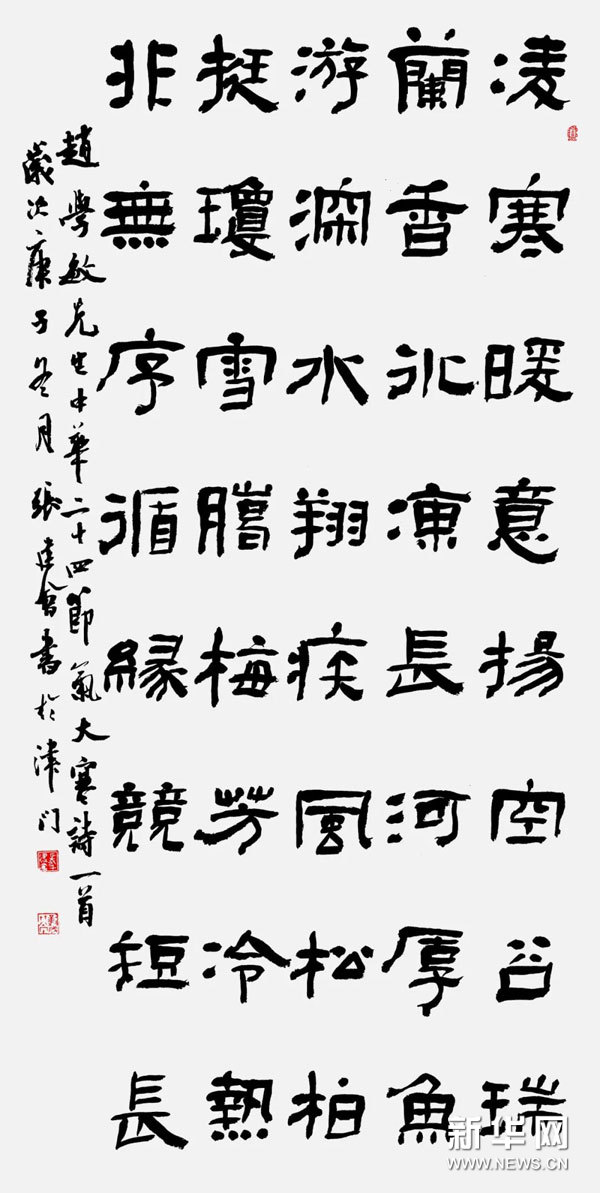 凌寒暖意揚空谷瑞
蘭香冰凍長河厚魚
游深水翔疾風松柏
挺瓊雪臘梅芳冷熱
非無序循緣競短長
趙學敏先生中華二十四節氣大寒詩一首
歲次庚子冬月張建會書於津門
新华网
WWW.NEWS.CN